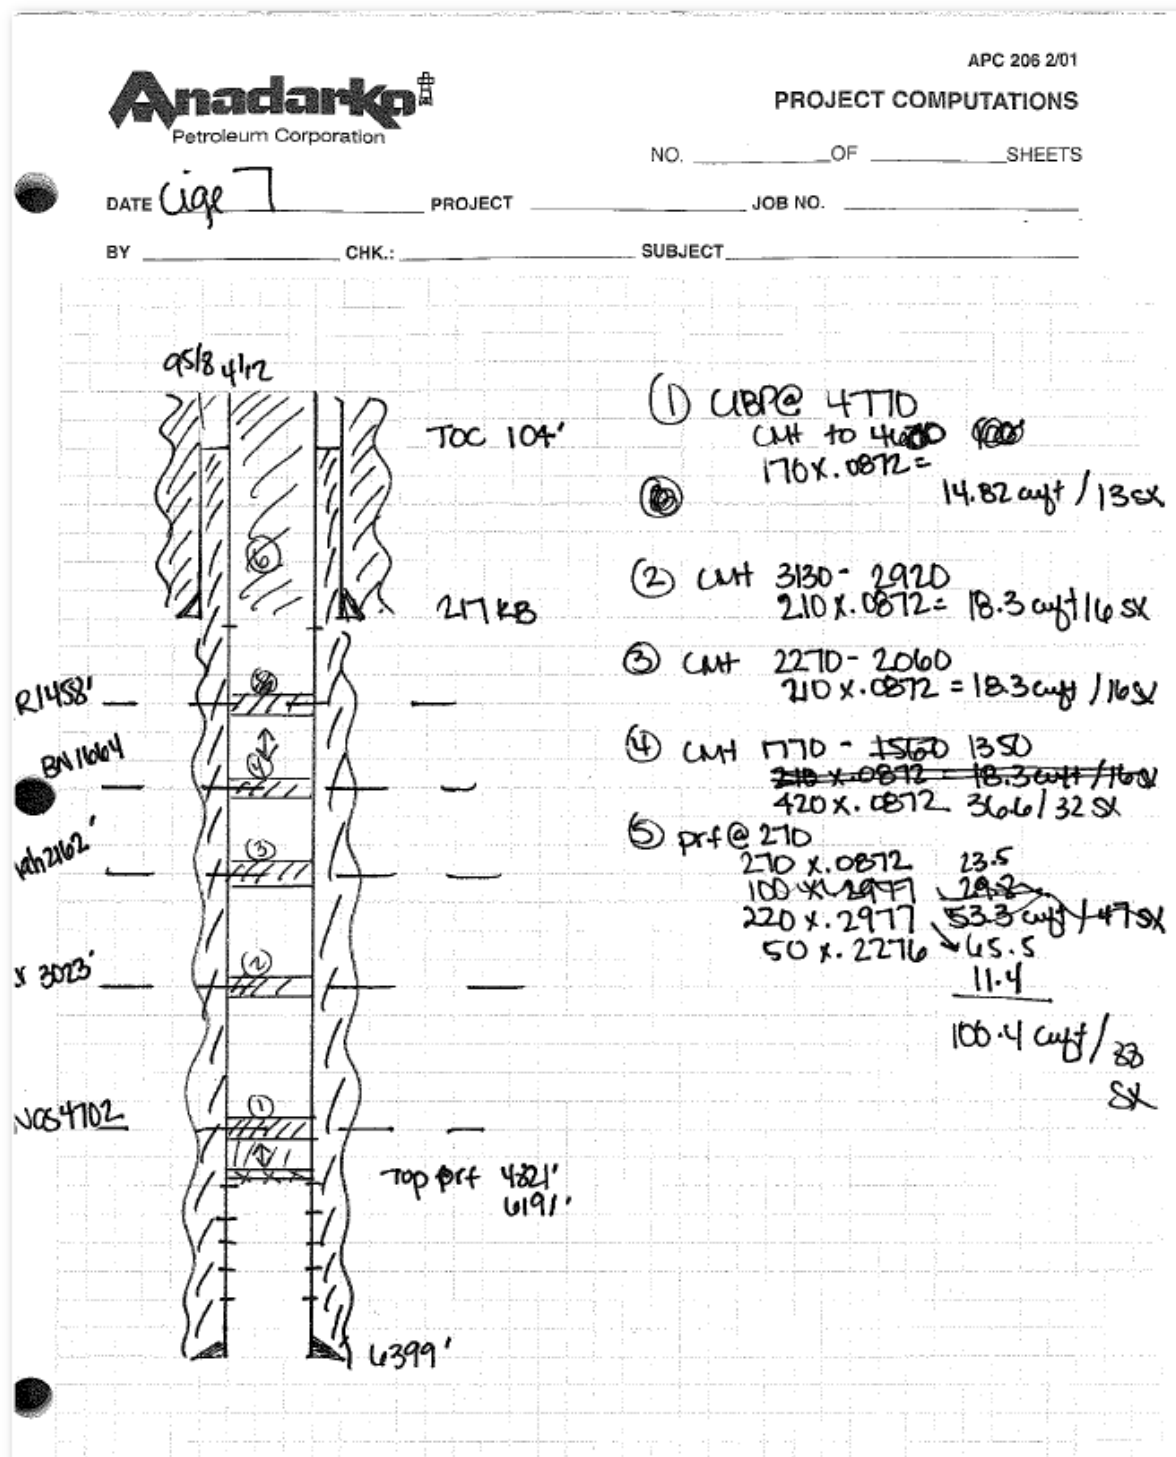 APC 206 2/01
Anadarko
Petroleum Corporation
PROJECT COMPUTATIONS
NO. OF SHEETS
DATE Cige 7 PROJECT JOB NO.
BY CHK.: SUBJECT
9 5/8 4 1/2
TOC 104'
6
217 KB
R 1458'
BN 1664
4
2162'
3
3023'
2
NOS 4702
1
Top prf 4821'
6191'
6399'
① CIBP@ 4770
CMT to
170 x .0872 =
14.82 cuft / 13 sx
② CMT 3130 - 2920
210 x .0872 = 18.3 cuft / 16 sx
③ CMT 2270 - 2060
210 x .0872 = 18.3 cuft / 16 sx
④ CMT 1770 - 1560 1350
210 x .0872 = 18.3 cuft / 16 sx
420 x .0872 36.6 / 32 sx
⑤ prf @ 270
270 x .0872 23.5
100 x .2977 29.8
220 x .2977 53.3 cuft / 47 sx
50 x .2276 65.5
11.4
100.4 cuft / 88
sx